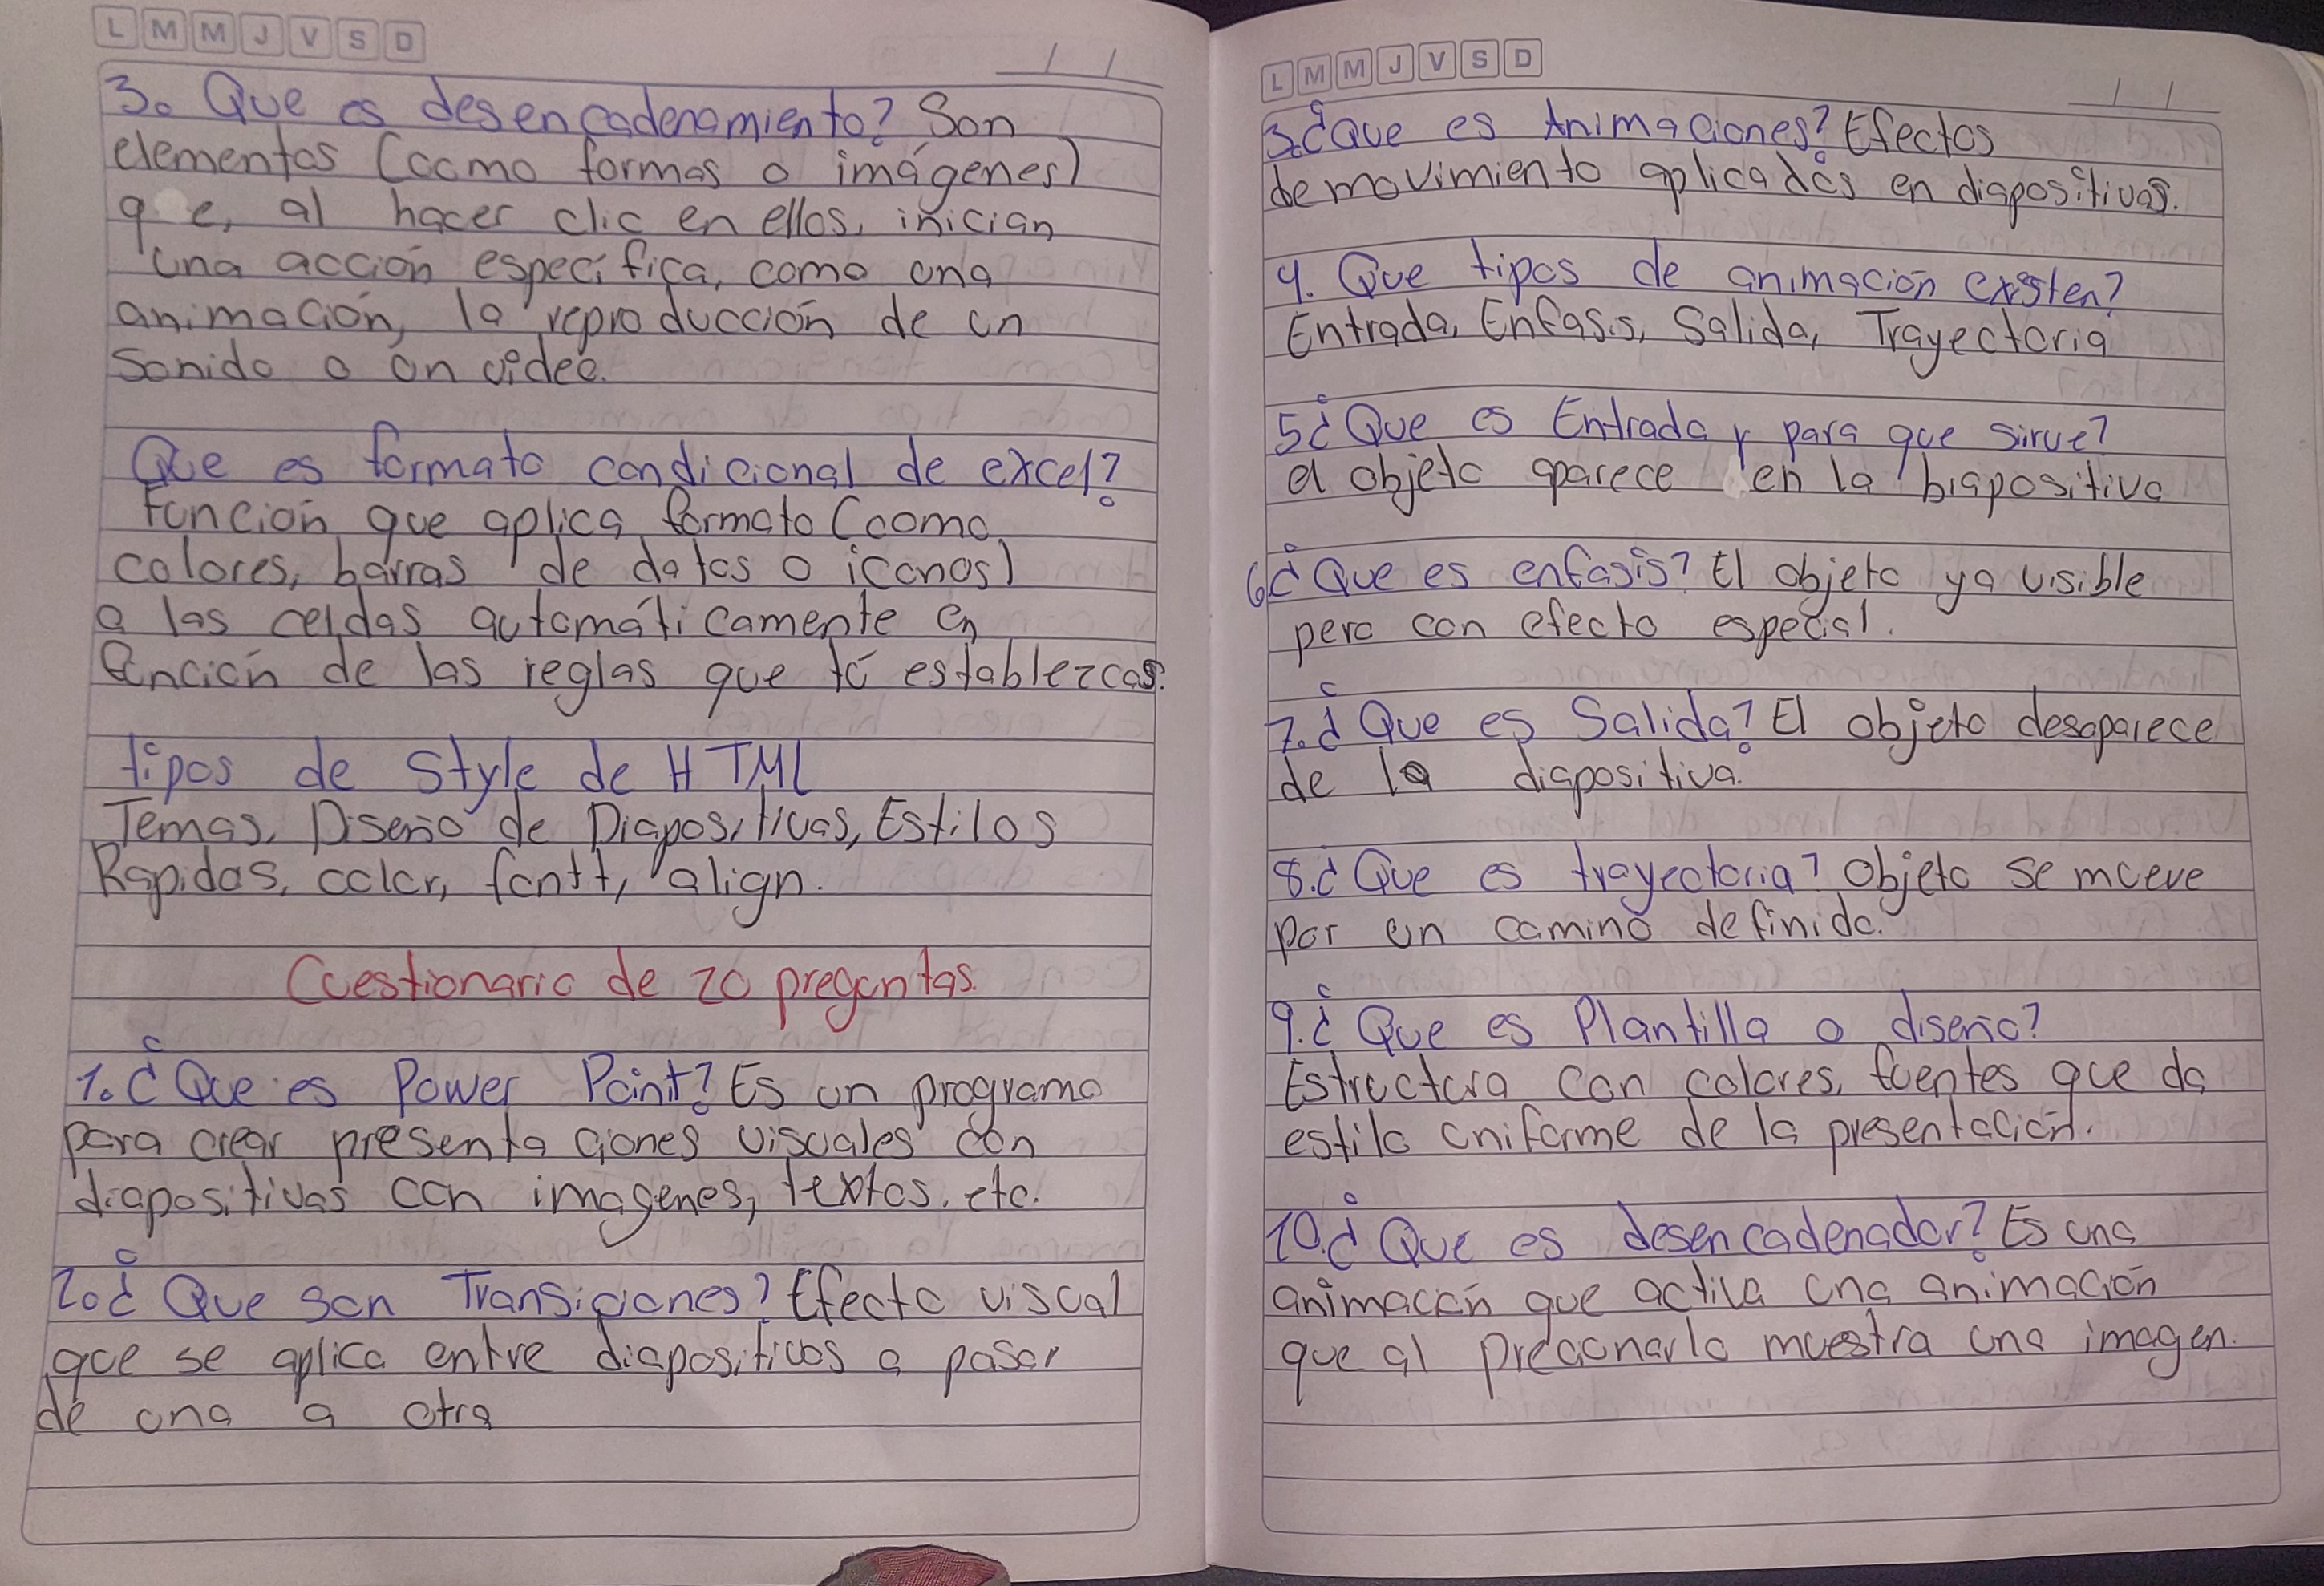 L M M J V S D
3. Que es desencadenamiento? Son
elementos (como formas o imágenes)
que, al hacer clic en ellos, inician
una acción específica, como una
animación, la reproducción de un
sonido o un video.
Que es formato condicional de excel?
Función que aplica formato (como
colores, barras de datos o iconos)
a las celdas automáticamente en
función de las reglas que tú establezcas.
tipos de Style de HTML
Temas, Diseño de Diapositivas, Estilos
Rapidos, color, fontt, align.
Cuestionario de 20 preguntas.
1. ¿Que es Power Point? Es un programa
para crear presentaciones visuales con
diapositivas con imagenes, textos, etc.
2. ¿Que son Transiciones? Efecto visual
que se aplica entre diapositivas a pasar
de una a otra
L M M J V S D
3. ¿Que es Animaciones? Efectos
de movimiento aplicados en diapositivas.
4. Que tipos de animación existen?
Entrada, Enfasis, Salida, Trayectoria
5 ¿Que es Entrada y para que sirve?
el objeto aparece en la biapositiva
6 ¿Que es enfasis? El objeto ya visible
pero con efecto especial.
7. ¿Que es Salida? El objeto desaparece
de la diapositiva.
8. ¿Que es trayectoria? Objeto se mueve
por un camino definido.
9. ¿Que es Plantilla o diseño?
Estructura con colores, fuentes que da
estilo uniforme de la presentación.
10. ¿Que es desencadenador? Es una
animación que activa una animación
que al precionarlo muestra una imagen.